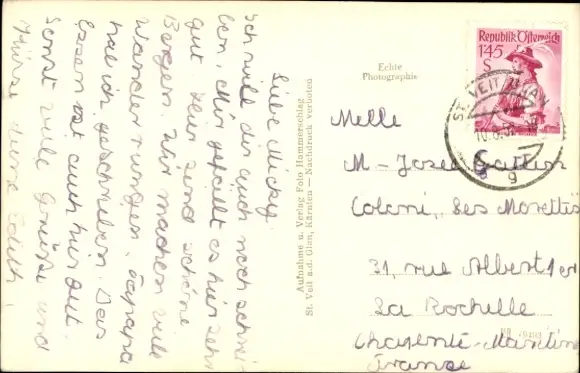 Liebe Micky.
Ich will dir auch noch schrei-
ben. Mir gefällt es hier sehr
gut. Hier sind schöne
Bergen. Wir machen viele
Wanderrungen.
hat ich geschrieben. Das
Essen ist auch hir gut.
Sonst viele Grüsse und
Küsse deine Edith.
Aufnahme u. Verlag Foto Hammerschlag
St. Veit a.d. Glan, Kärnten — Nachdruck verboten
Echte
Photographie
Republik Österreich
1.45
S
ST. VEIT
10.8.52
g
Melle
M-Josée
Coloni, Les Morettes
31, rue Albert 1er
La Rochelle
Charente-Maritime
France